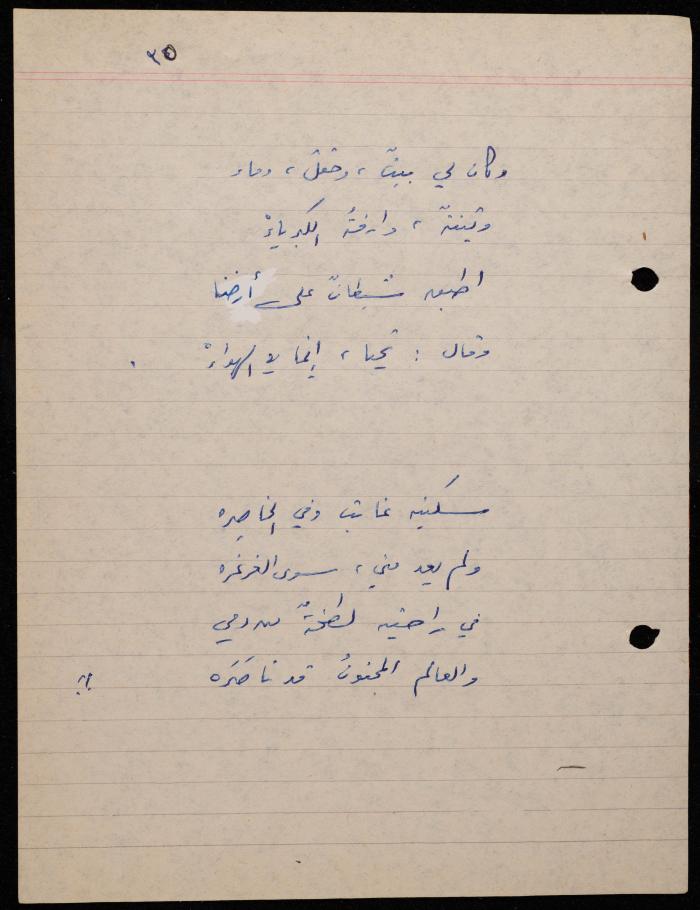 ٣٥
وكان لي بيتٌ، وحقلٌ، وماء
وتينةٌ، وارفةُ الكبرياءْ
اطبق شيطانٌ على أرضنا
وقال : تحيا، إنما لا الهواءْ .
سكينه غابت وفي الخاصره
ولم يعد مني، سوى الغرغره
في راحتيه لطخةٌ من دمي
والعالم المجنونُ قد ناصَرَه !!